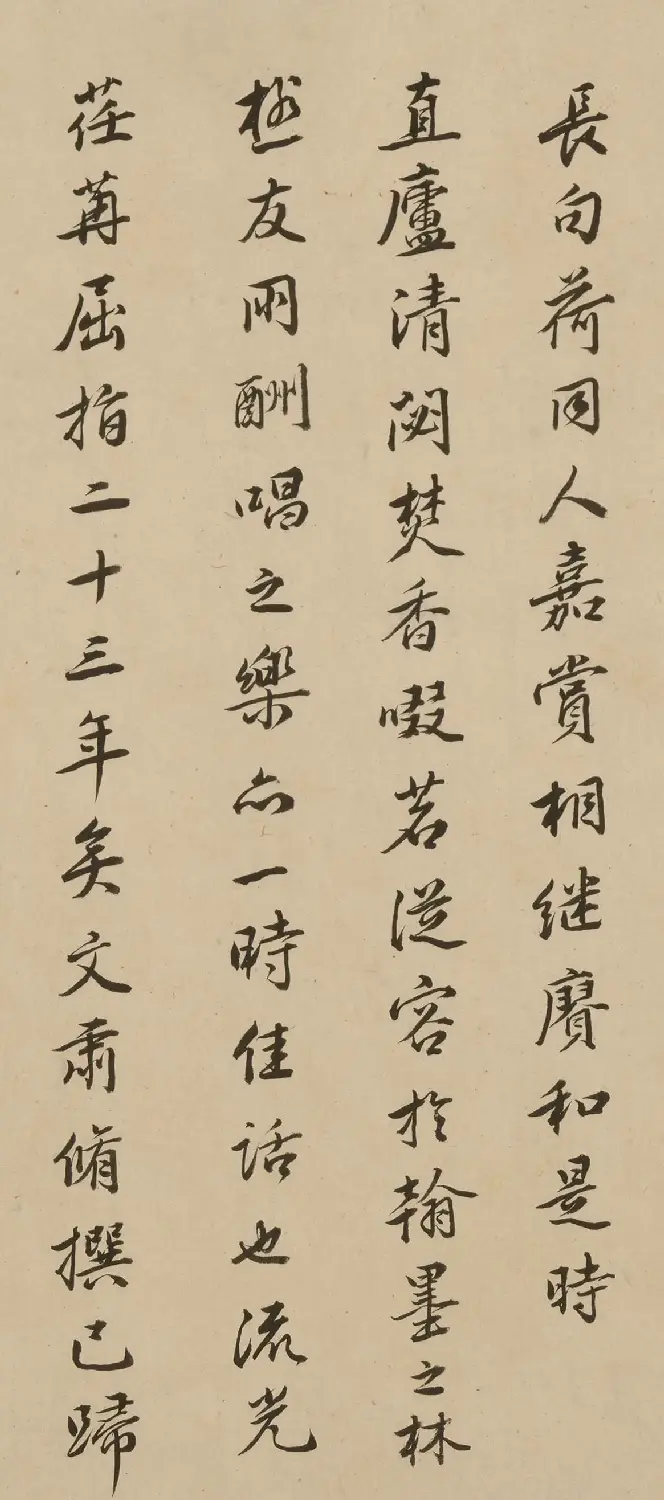 長句荷同人嘉賞相继賡和是時
直廬清閟焚香啜茗從容於翰墨之林
極友朋酬唱之樂亦一時佳話也流光
荏苒屈指二十三年矣文肅脩撰已歸